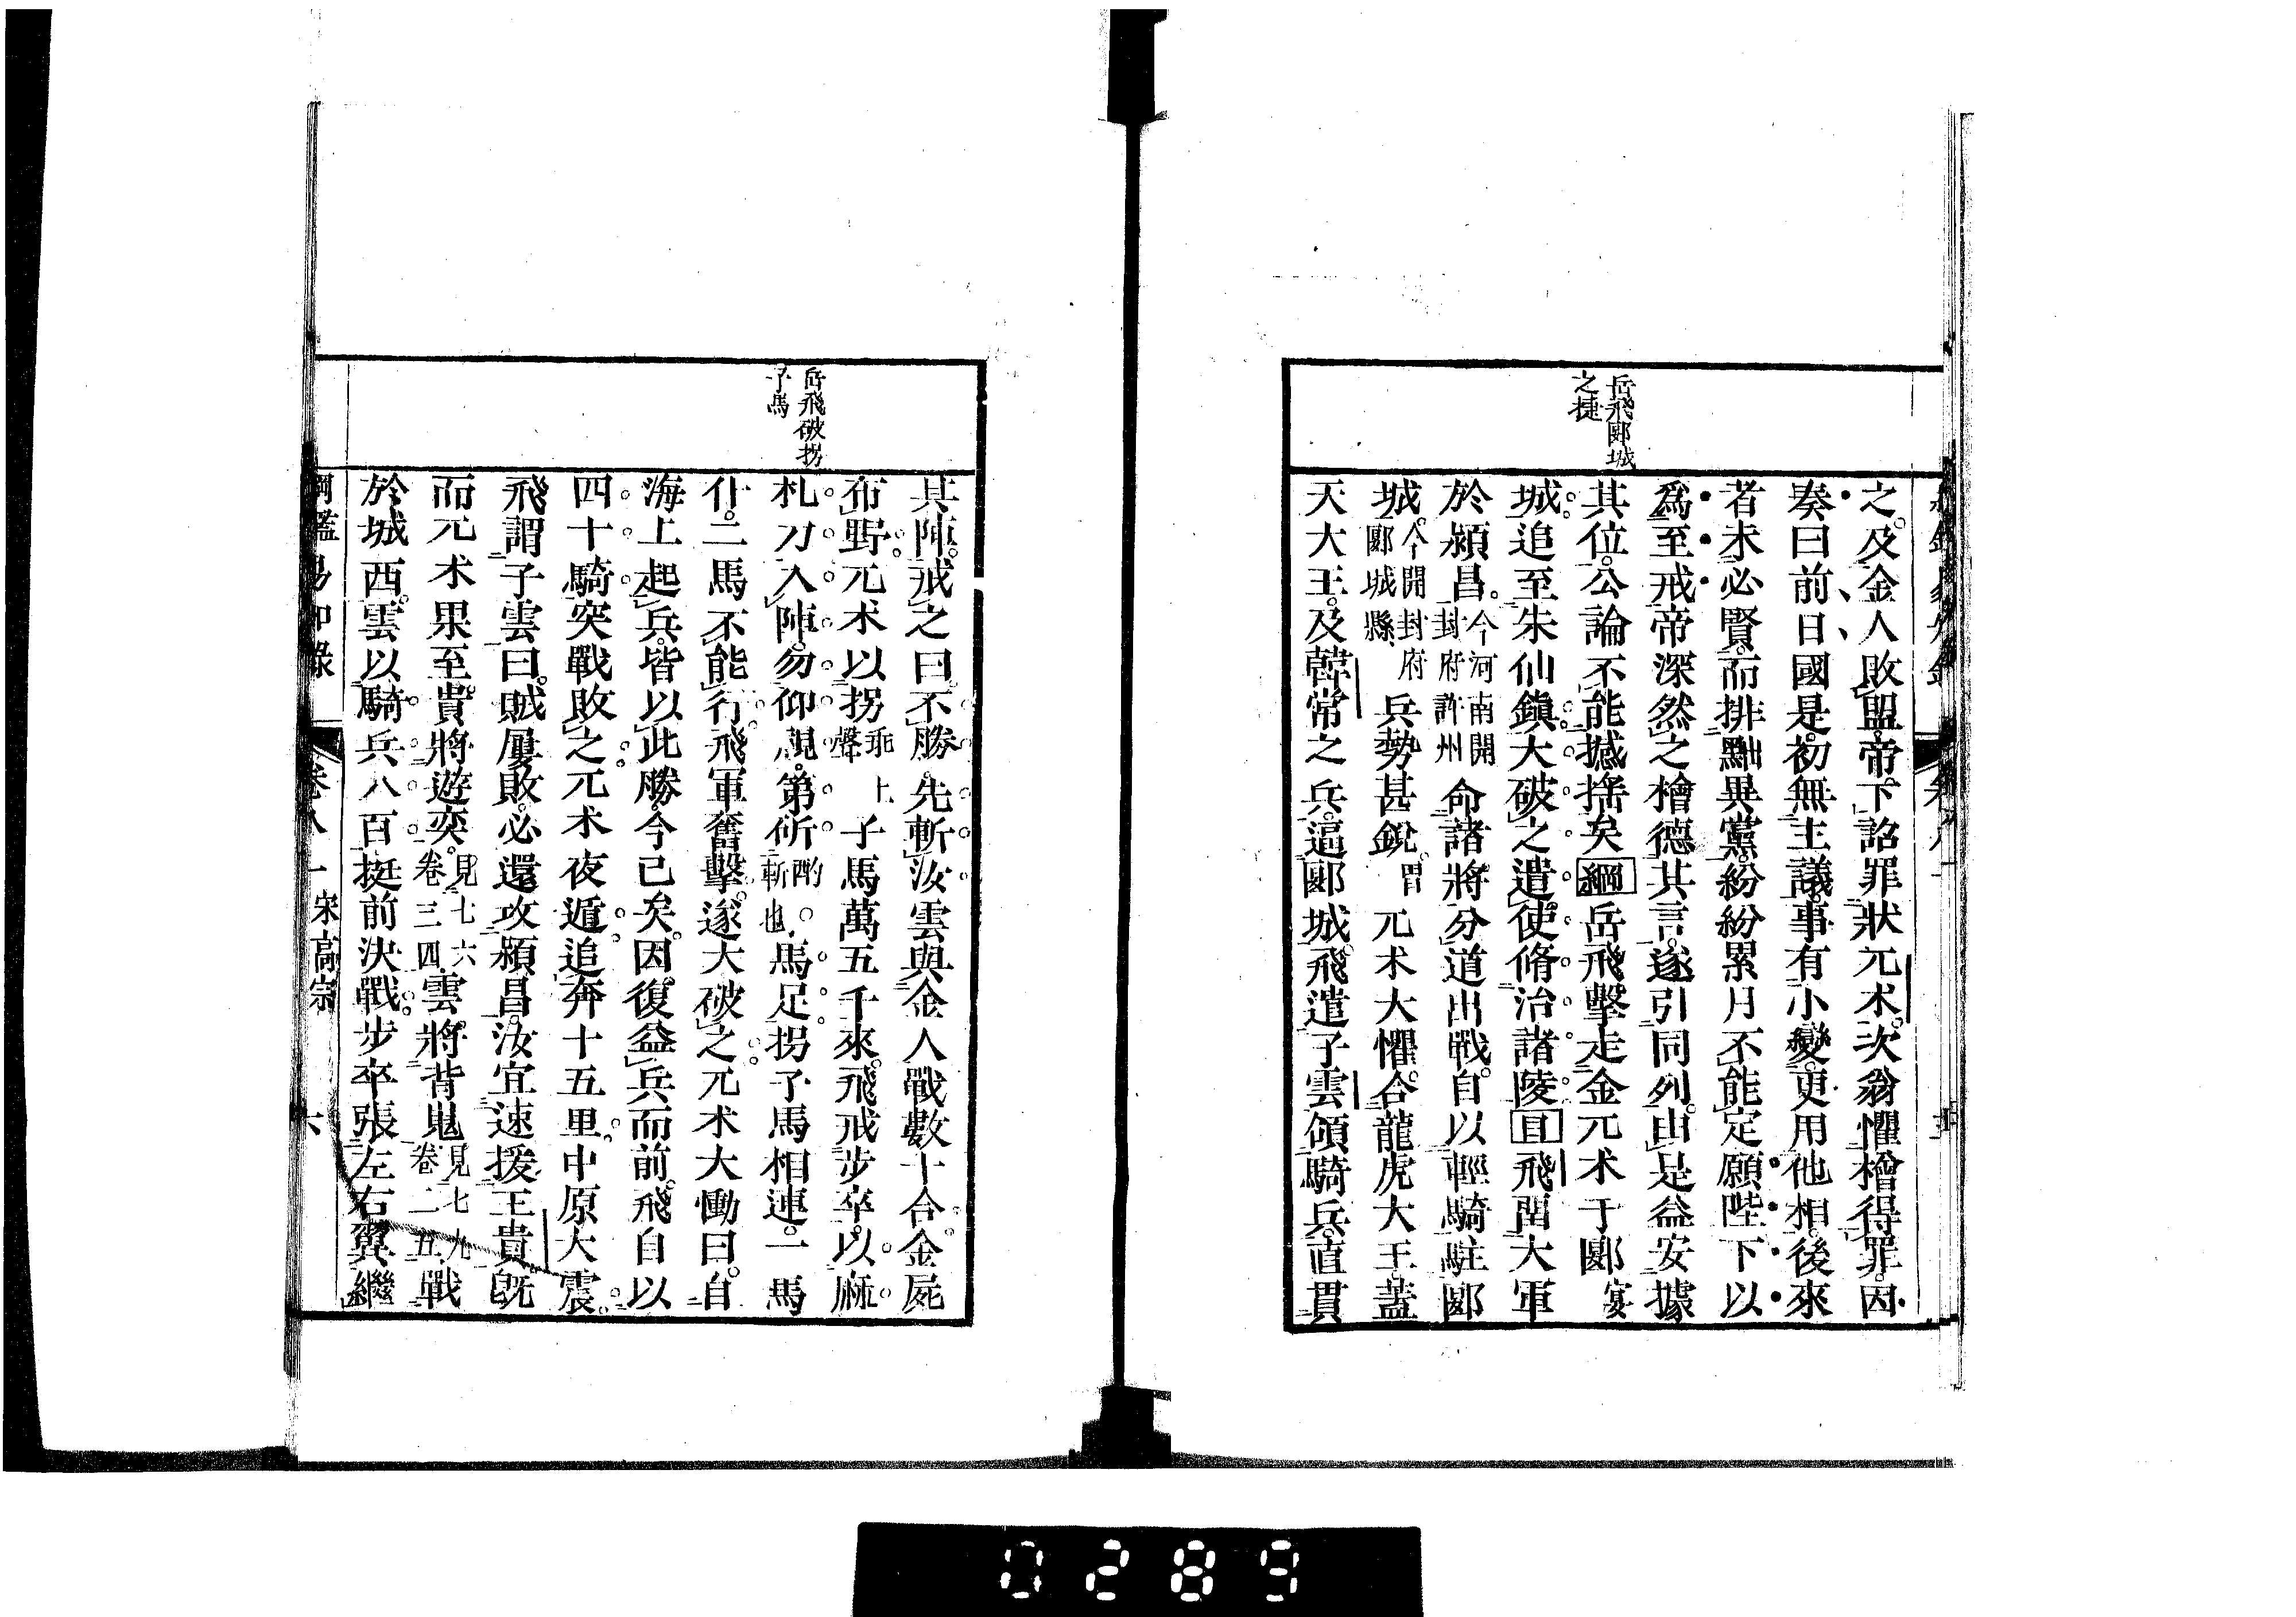 岳飛郾城
之捷
之。及金人敗盟。帝。下詔罪狀元朮。次翁懼檜得罪。因
奏曰前日國是。初無主議。事有小變。更用他相。後來
者未必賢。而排黜異黨。紛紛累月不能定願陛下以
爲至戒帝深然之檜德其言。遂引同列。由是益安據
其位。公論不能撼搖矣綱岳飛擊走金元朮于郾宴
城。追至朱仙鎭大破之遣。使脩治諸陵目飛留大軍
於潁昌。今河南開封府許州命諸將分道出戰。自以輕騎駐郾
城。今開封府郾城縣兵勢甚銳。元朮大懼。合龍虎大王。蓋
天大王。及韓常之兵。逼郾城。飛遣子雲領騎兵。直貫
岳飛破拐
子馬
其陣。戒之曰。不勝。先斬汝雲與金人戰數十合。金屍
布野元朮以拐乖上聲子馬萬五千來。飛戒步卒。以麻
札刀入陣。勿仰視。第斫酌斬也馬足。拐子馬相連。一馬
仆。二馬不能行。飛軍奮擊。遂大破之。元朮大慟曰。自
海上起兵。皆以此勝。今已矣。因。復益兵而前。飛自以
四十騎突戰敗之。元朮夜遁。追奔十五里。中原大震
飛謂子雲曰。賊屢敗。必還攻潁昌。汝宜速援王貴。旣
而元朮果至。貴將遊奕。見七六卷三四雲。將背嵬見七九卷二五戰
於城西。雲以騎兵八百挺前決戰。步卒張左右翼繼
綱鑑易知錄 卷八一 宋高宗 六
0289